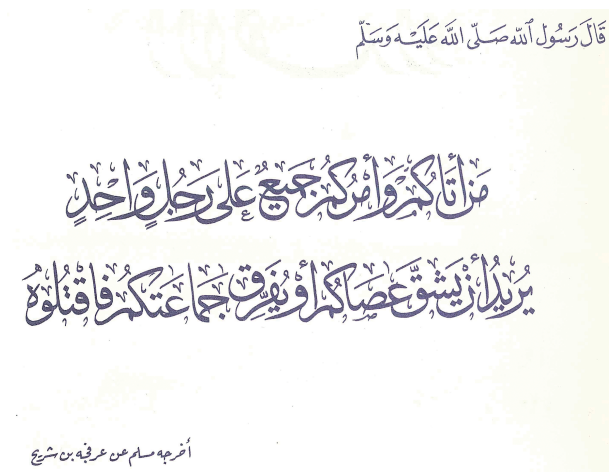 قَالَ رَسُول ٱللّه صَلّى اللَّه عَلَيْه وَسَلّم
مَنْ أَتَاكُمْ وَأَمْرُكُمْ جَمِيعٌ عَلى رَجُلٍ وَاحِدٍ
يُرِيدُ أَنْ يَشُقَّ عَصَاكُمْ أَوْ يُفَرِّقَ جَمَاعَتَكُمْ فَاقْتُلُوْهُ
أخرجه مسلم عن عرفجه بن شريح